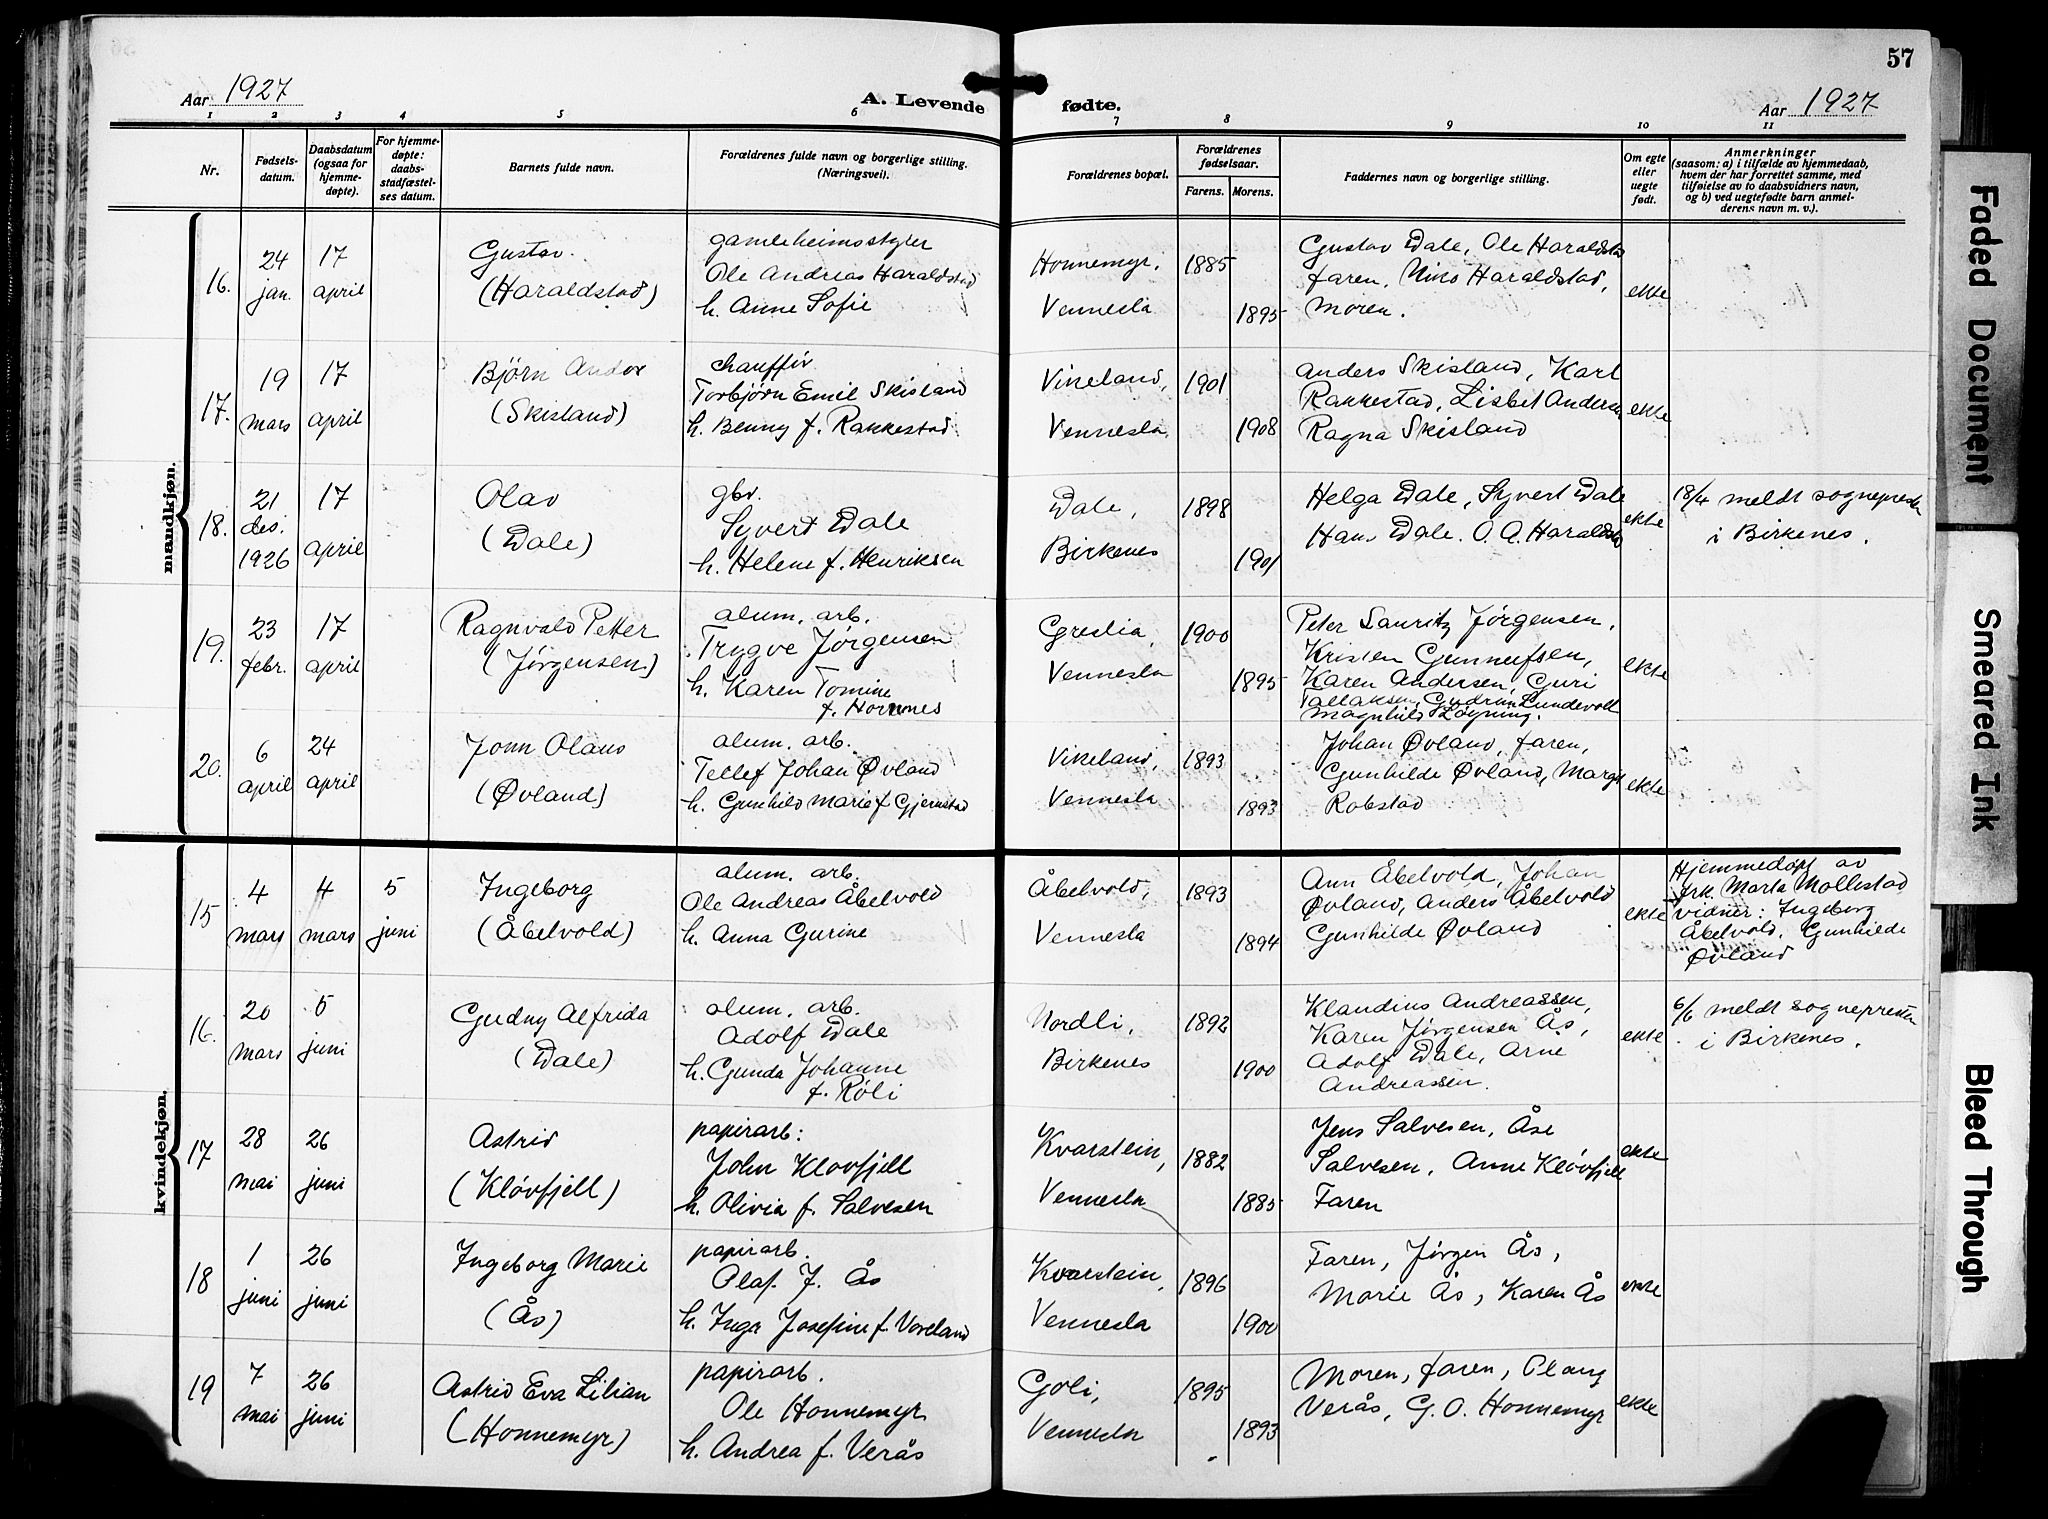 57
Aar 1927
A. Levende fødte.
Aar 1927
1 2 3 4 5 6 7 8 9 10 11
Nr.
Fødsels-
datum.
Daabsdatum
(ogsaa for
hjemme-
døpte).
For hjemme-
døpte:
daabs-
stadfæstel-
ses datum.
Barnets fulde navn.
Forældrenes fulde navn og borgerlige stilling.
(Næringsvei).
Forældrenes bopæl.
Forældrenes
fødselsaar.
Farens. Morens.
Faddernes navn og borgerlige stilling.
Om egte
eller
uegte
født.
Anmerkninger
(saasom: a) i tilfælde av hjemmedaab,
hvem der har forrettet samme, med
tilføielse av to daabsvidners navn,
og b) ved uegtefødte barn anmel-
derens navn m. v.).
mandkjøn.
16.
24
jan.
17
april
Gustav
(Haraldstad)
gamleheimsstyrer
Ole Andreas Haraldstad
h. Anne Sofie
Honnemyr,
Vennesla
1885
1895
Gustav Dale, Ole Haraldstad
faren, Haraldstad,
Moren.
ekte
17.
19
mars
17
april
Bjørn Andor
(Skisland)
chauffør
Torbjørn Emil Skisland
h. Benny f. Rakkestad
Vikeland,
Vennesla
1901
1908
Anders Skisland, Karl
Rakkestad, Lisbet Andersen
Ragna Skisland
ekte
18.
21
des.
1926
17
april
Olav
(Dale)
gbr.
Syvert Dale
h. Helene f. Henriksen
Dale,
Birkenes
1898
1901
Helga Dale, Syvert Dale
Hans Dale. O. A. Haraldstad
ekte
18/4 meldt sognepresten
i Birkenes.
19.
23
febr.
17
april
Ragnvald Petter
(Jørgensen)
alum. arb.
Trygve Jørgensen
h. Karen Tomine
f. Hornnes
Greslia,
Vennesla
1900
1895
Peter Lauritz Jørgensen,
Kristen Gunnufsen,
Karen Andersen, Guri
Tallaksen, Gudrun Lundevold
Magnhild Løyning.
ekte
20.
6
april
24
april
John Olaus
(Øvland)
alum. arb.
Tellef Johan Øvland
h. Gunhild Marie f. Gjernstad
Vikeland,
Vennesla
1893
1893
Johan Øvland, faren,
Gunhilde Øvland, Margit
Robstad
ekte
kvindekjøn.
15
4
mars
4
mars
5
juni
Ingeborg
(Åbelvold)
alum. arb.
Ole Andreas Åbelvold
h. Anna Gurine
Åbelvold,
Vennesla
1893
1894
Ann Åbelvold, Johan
Øvland, Anders Åbelvold
Gunhilde Øvland
ekte
Hjemmedøpt av
frk. Marta Mollestad
vidner: Ingeborg
Åbelvold, Gunhilde
Øvland
16.
20
mars
5
juni
Gudny Alfrida
(Dale)
alum. arb.
Adolf Dale
h. Gunda Johanne
f. Røli
Nordli,
Birkenes
1892
1900
Klaudius Andreassen,
Karen Jørgensen Ås,
Adolf Dale, Arne
Andreassen.
ekte
6/6 meldt sognepresten
i Birkenes.
17
28
mai
26
juni
Astrid
(Kløvfjell)
papirarb:
John Kløvfjell
h. Olivia f. Salvesen
Kvarstein,
Vennesla
1882
1885
Jens Salvesen, Åse
Salvesen, Anne Kløvfjell
Faren
ekte
18
1
juni
26
juni
Ingeborg Marie
(Ås)
papirarb.
Olaf J. Ås
h. Inga Josefine f. Voreland
Kvarstein,
Vennesla
1896
1900
Faren, Jørgen Ås,
Marie Ås, Karen Ås
ekte
19
7
mai
26
juni
Astrid Eva Lilian
(Honnemyr)
papirarb.
Ole Honnemyr
h. Andrea f. Verås
Goli,
Vennesla
1895
1893
Moren, faren,
Verås, G. O. Honnemyr
ekte
Faded Document
Smeared Ink
Bleed Through